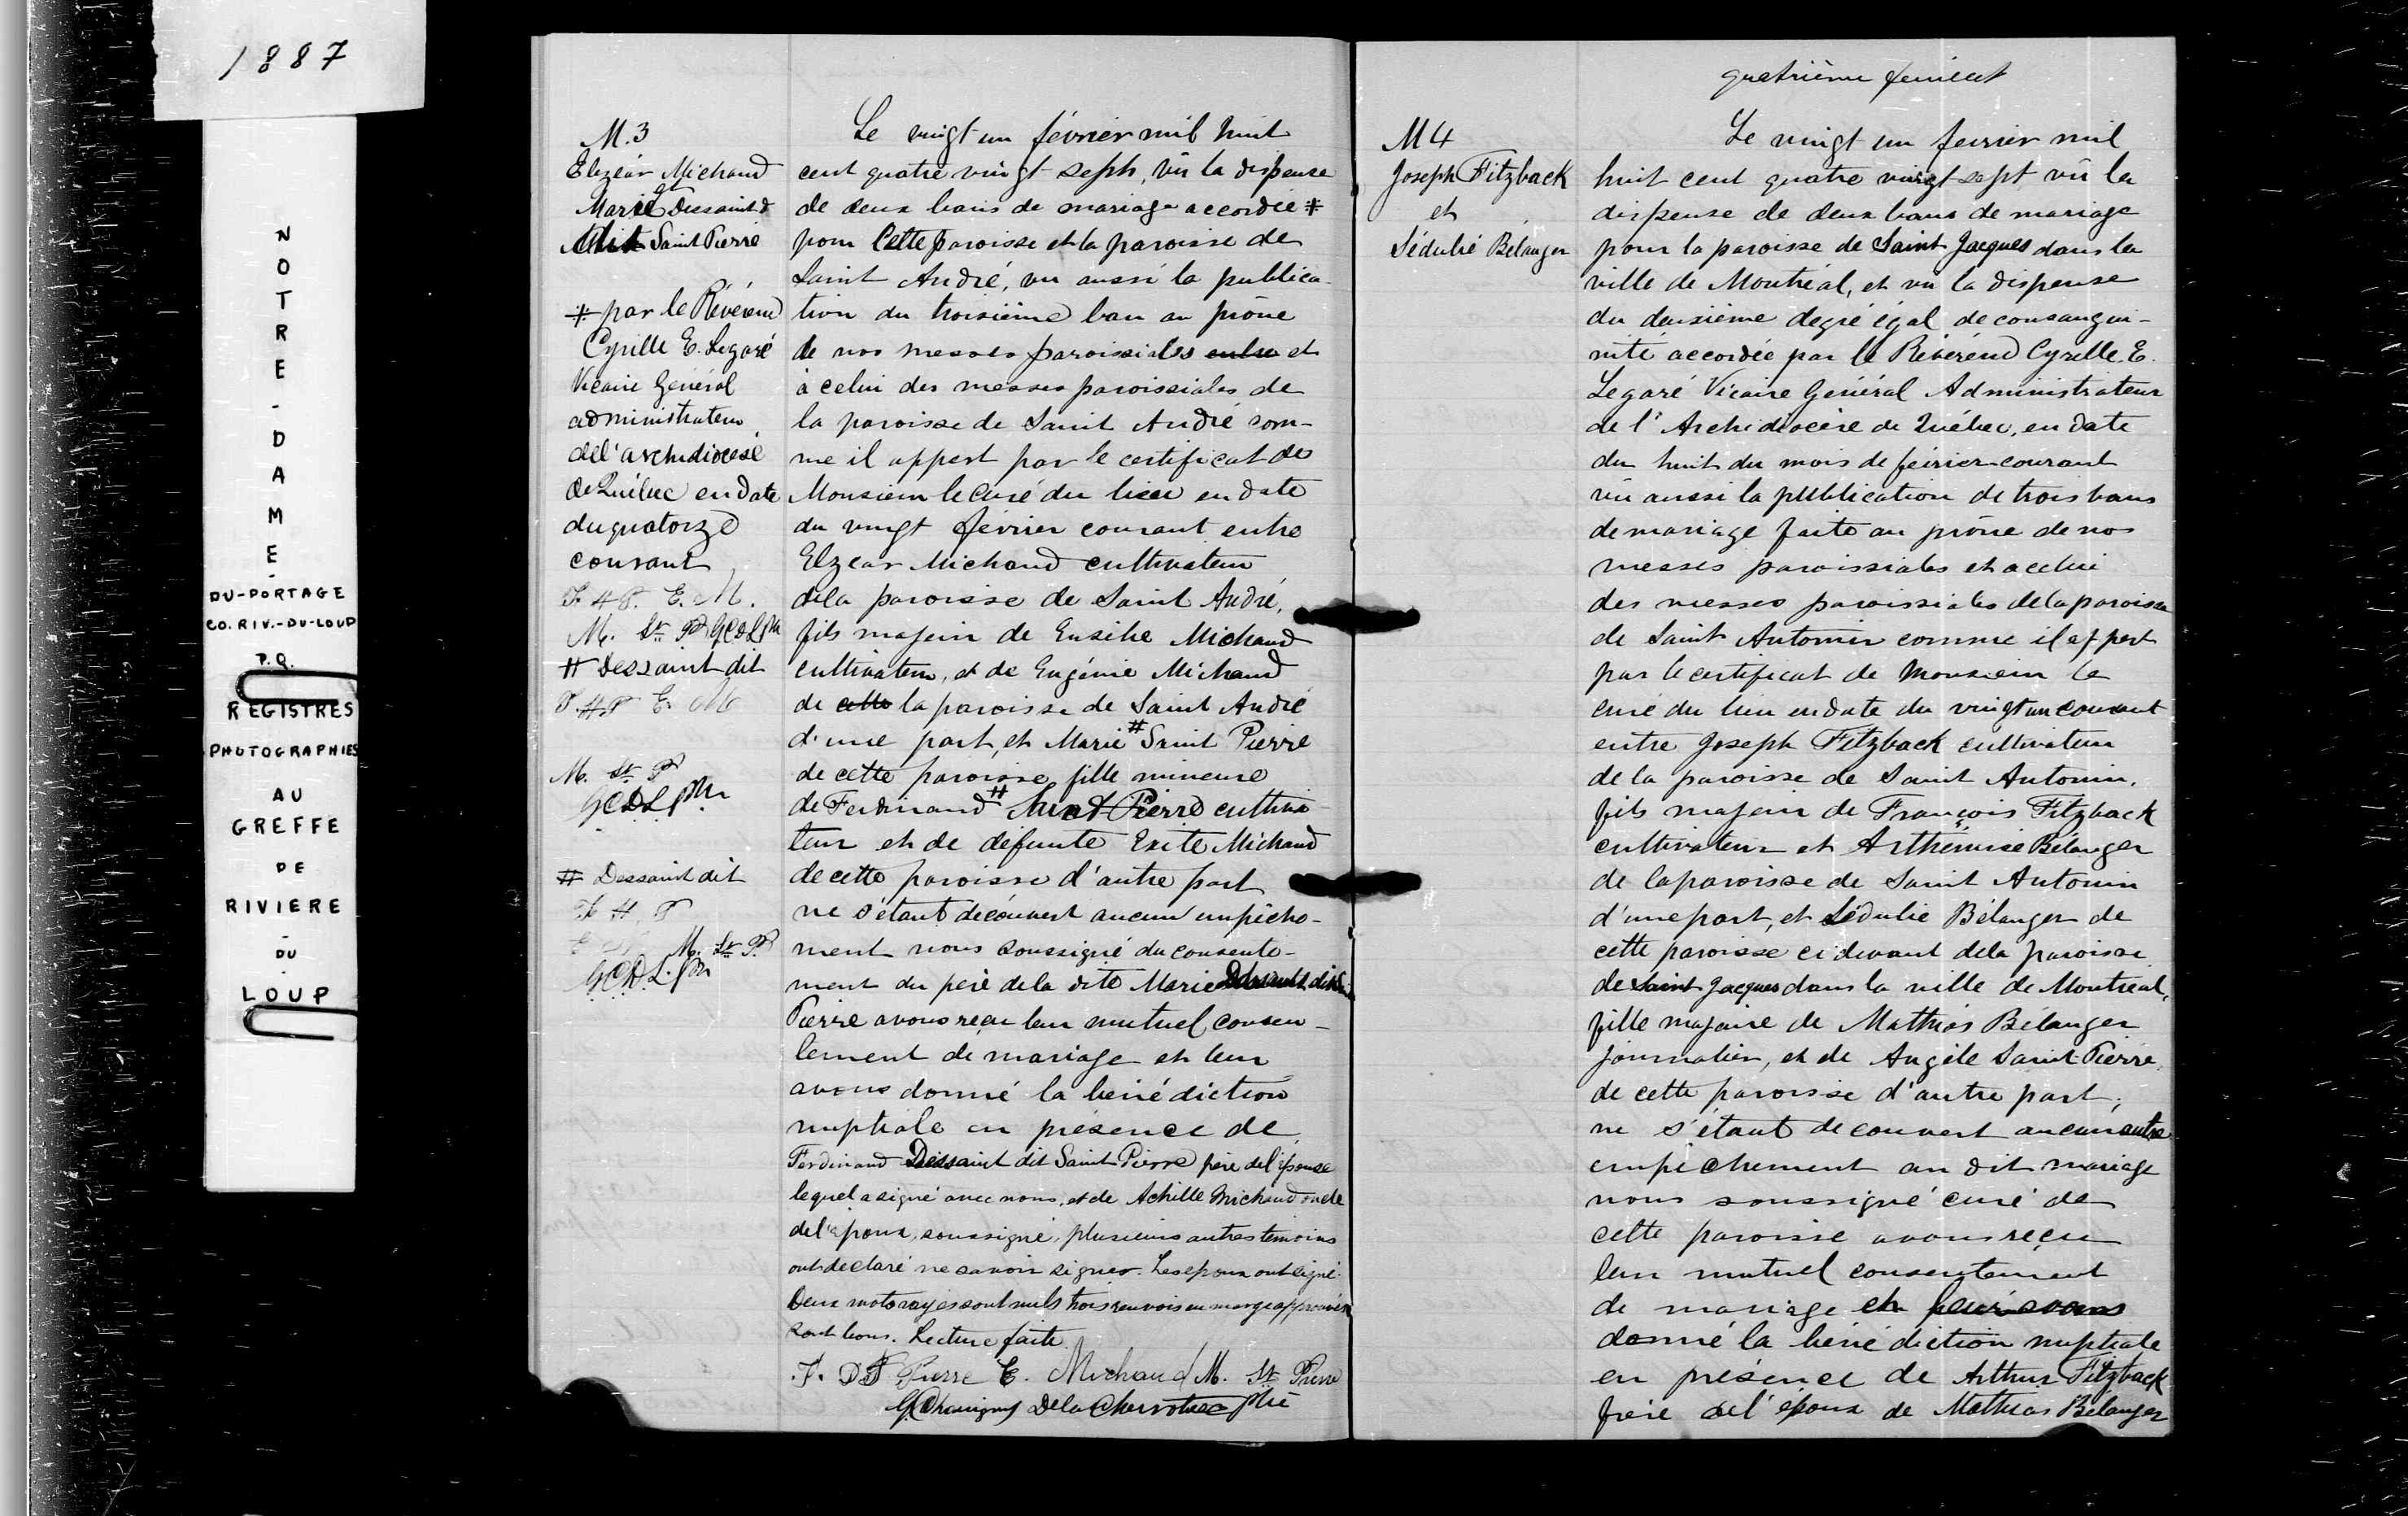 1887
NOTRE-DAME-
DU-PORTAGE
CO. RIV.-DU-LOUP
P.Q.
REGISTRES
PHOTOGRAPHIES
AU
GREFFE
DE
RIVIERE
-
DU
-
LOUP
M.3
Elzéar Michaud
et
Marie Dessaint d
Saint Pierre
# par le Révérend
Cyrille E. Legaré
Vicaire Général
administrateur
de l'archidiocèse
de Québec en date
du quatorze
courant
F H P. E. M.
M. St P GCDL Ptre
# Dessaint dit
F. H P E. M
M. St P
GCDL Ptre
# Dessaint dit
F H P
M. St P.
GCDL. Ptre
Le vingt un février mil huit
cent quatre vingt sept, vû la dispense
de deux bans de mariage accordée #
pour cette paroisse et la paroisse de
Saint André, vu aussi la publica-
tion du troisième ban au prône
de nos messes paroissiales entre et
à celui des messes paroissiales de
la paroisse de Saint André com-
me il appert par le certificat de
Monsieur le Curé du lieu en date
du vingt février courant entre
Elzear Michaud cultivateur
de la paroisse de Saint André,
fils majeur de Eusèbe Michaud
cultivateur, et de Eugénie Michaud
de cette la paroisse de Saint André
d'une part, et Marie # Saint Pierre
de cette paroisse, fille mineure
de Ferdinand # Saint Pierre cultiva-
teur et de défunte Exite Michaud
de cette paroisse d'autre part
ne s'étant découvert aucun empêche-
ment nous soussigné du consente-
ment du père de la dite Marie Dessaint dit St
Pierre avons reçu leur mutuel consen-
tement de mariage et leur
avons donné la bénédiction
nuptiale en présence de
Ferdinand Dessaint dit Saint Pierre père de l'épouse
lequel a signé avec nous, et de Achille Michaud oncle
de l'époux, soussigné, plusieurs autres témoins
ont déclaré ne savoir signer. Les époux ont signé.
Deux mots rayés sont nuls trois renvois en marge approuvés
sont bons. Lecture faite.
F. D St Pierre E. Michaud M. St Pierre
GChavigny De la Chevrotière Ptre
quatrième feuillet
M 4
Joseph Fitzback
et
Sédulié Bélanger
Le vingt un fevrier mil
huit cent quatre vingt sept vû la
dispense de deux bans de mariage
pour la paroisse de Saint Jacques dans la
ville de Montréal, et vu la dispense
du deuxième degré égal de consangui-
nité accordée par le Révérend Cyrille E.
Legaré Vicaire Général Administrateur
de l'Archidiocèse de Québec, en date
du huit du mois de février courant
vû aussi la publication de trois bans
de mariage faite au prône de nos
messes paroissiales et a celui
des messes paroissiales de la paroisse
de Saint Antonin comme il appert
par le certificat de Monsieur le
curé du lieu en date du vingt un courant
entre Joseph Fitzback cultivateur
de la paroisse de Saint Antonin,
fils majeur de François Fitzback
cultivateur et Arthémise Bélanger
de la paroisse de Saint Antonin
d'une part, et Sédulie Bélanger de
cette paroisse ci devant de la paroisse
de Saint Jacques dans la ville de Montréal,
fille majeure de Mathias Bélanger
journalier, et de Angèle Saint Pierre,
de cette paroisse d'autre part,
ne s'étant découvert aucun autre
empêchement au dit mariage
nous soussigné curé de
cette paroisse avons reçu
leur mutuel consentement
de mariage et leur avons
donné la bénédiction nuptiale
en présence de Arthur Fitzback
frère de l'époux de Mathias Bélanger